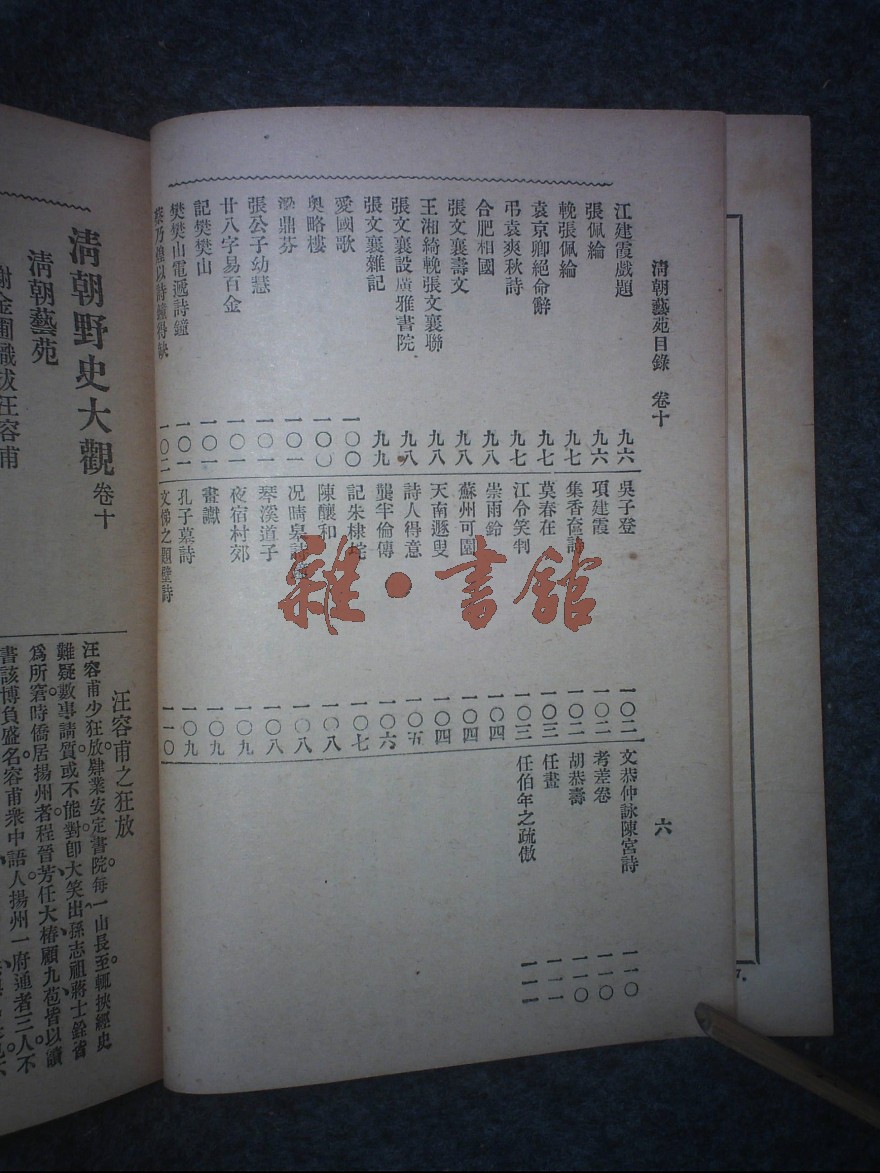 清朝藝苑目錄 卷十
六
江建霞戲題 九六
張佩綸 九六
輓張佩綸 九七
袁京卿絕命辭 九七
弔袁爽秋詩 九七
合肥相國 九八
張文襄壽文 九八
王湘綺輓張文襄聯 九八
張文襄設廣雅書院 九八
張文襄雜記 九九
愛國歌 一〇〇
奥略樓 一〇〇
梁鼎芬 一〇一
張公子幼慧 一〇一
廿八字易百金 一〇一
記樊樊山 一〇一
樊樊山電遞詩鐘 一〇一
蔡乃煌以詩鐘得缺 一〇二
吳子登 一〇二
項建霞 一〇二
集香奩詩 一〇二
莫春在 一〇三
江令笑判 一〇三
崇雨鈴 一〇四
蘇州可園 一〇四
天南遯叟 一〇四
詩人得意 一〇五
龔半倫傳 一〇六
記朱棣垞 一〇七
陳釀和 一〇八
况晴臯 一〇八
琴溪道子 一〇八
夜宿村郊 一〇九
畫讞 一〇九
孔子墓詩 一〇九
文悌之題壁詩 一一〇
文恭仲詠陳宮詩 一一〇
考差卷 一一〇
胡恭壽 一一〇
任畫 一一一
任伯年之疏傲 一一一
雜·書館
清朝野史大觀 卷十
清朝藝苑
謝金圃識拔汪容甫
汪容甫之狂放
汪容甫少狂放。肄業安定書院。每一山長至。輒挾經史
難疑數事請質。或不能對。卽大笑出。孫志祖蔣士銓皆
爲所窘。時僑居揚州者。程晉芳任大椿顧九苞。皆以讀
書該博負盛名。容甫衆中語人。揚州一府。通者三人。不
7.